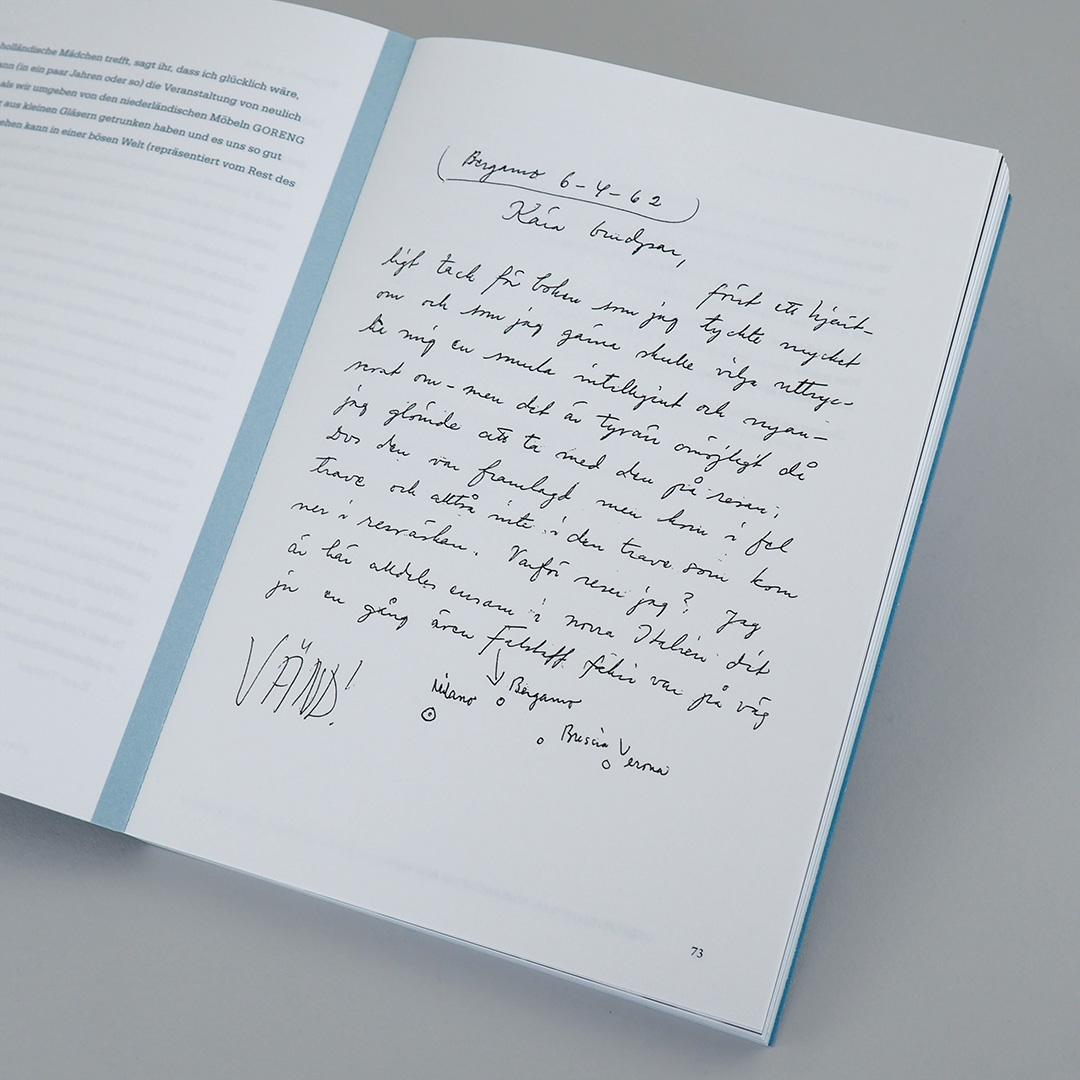 holländische Mädchen trefft, sagt ihr, dass ich glücklich wäre,
ann (in ein paar Jahren oder so) die Veranstaltung von neulich
als wir umgeben von den niederländischen Möbeln GORENG
aus kleinen Gläsern getrunken haben und es uns so gut
ehen kann in einer bösen Welt (repräsentiert vom Rest des
Bergamo 6-4-62
Kära brudpar,
först ett hjärt-
ligt tack för boken som jag tyckte mycket
om och som jag gärna skulle vilja uttryc-
ka mig en smula intelligent och nyan-
serat om – men det är tyvärr omöjligt då
jag glömde att ta med den på resan;
dvs den var framlagd men kom i fel
trave och alltså inte i den trave som kom
ner i resväskan. Varför reser jag? Jag
är här alldeles ensam i norra Italien dit
ju en gång även Falstaff fakir var på väg
VÄND!
Milano
Bergamo
Brescia
Verona
73